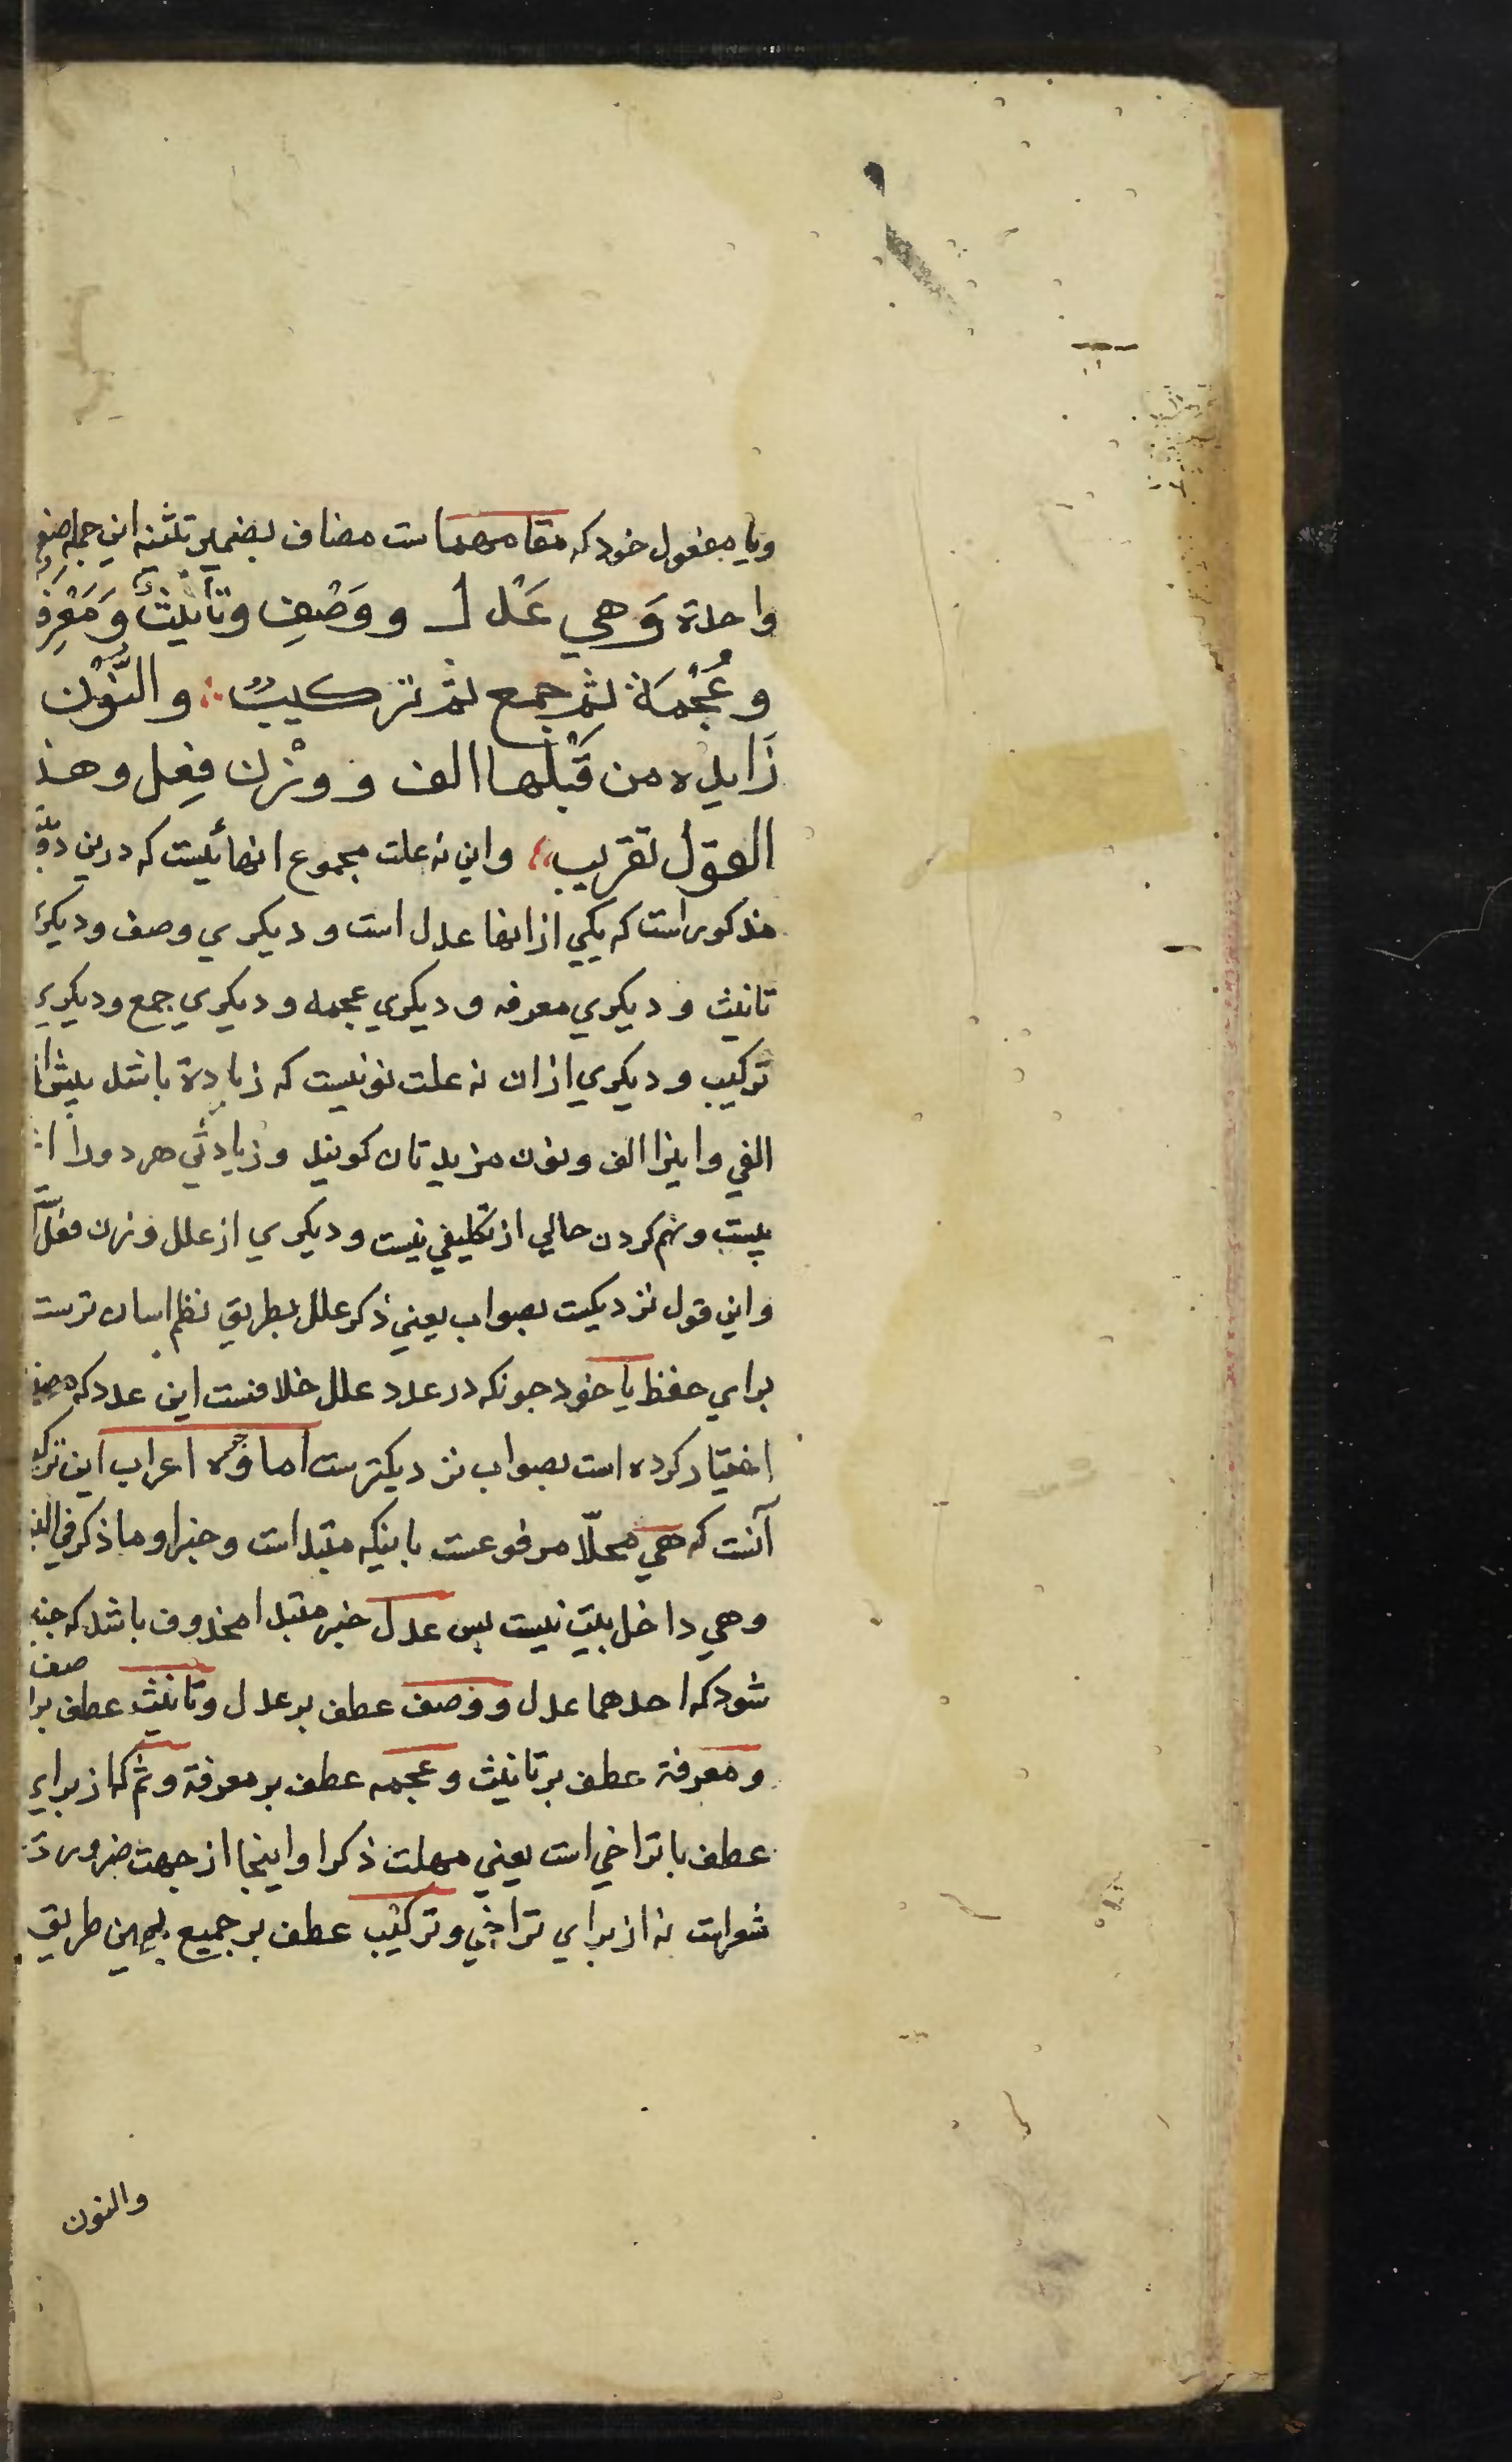 وبا مفعول خود که مقامهما ست مضاف بضمیر تثنیه این جمله صفة
واحدة وَهي عَدْل ووَصْفٍ وتأنيثٌ وَمَعْرِفَةٌ
وعُجْمَةٌ ثم جمع ثم تركيبٌ والنُّوْن
زَايده من قَبْلِها الف ووزن فِعل وهذ
القول تقريب واین نه علت مجموع انهائیست که درین دو
مذکور است که یکي از انها عدل است و دیکري وصف و دیکري
تانیث و دیکري معرفه و دیکري عجمه و دیکري جمع و دیکري
ترکیب و دیکري ازان نه علت نونیست که زیادة باشد پیش از
الفي واینرا الف ونون مزیدتان کویند وزیادتي هر دو را از
بیت وهم کردن خالي از تکلیفي نیست و دیکري از علل وزن فعل است
واین قول نزدیکست بصواب یعني ذکر علل بطریق نظم اسان ترست
براي حفظ یا خود چونکه در عدد علل خلافست این عدد که مصنف
اختیار کرده است بصواب نزدیکترست اما وجه اعراب این ترکیب
آنست که هي محلّا مرفوعست باینکه مبتداست وخبر او ما ذکر في البیت
وهي داخل بیت نیست پس عدل خبر مبتدا محذوف باشد که چنین
شود که احدهما عدل ووصف عطف بر عدل وتانیث عطف بر وصف
ومعرفة عطف بر تانیث وعجمه عطف بر معرفة وثم که از براي
عطف با تراخي است یعني مهلت ذکر او اینجا از جهت ضرورت
شعرست نه از براي تراخي وترکیب عطف بر جمیع بهمین طریق
والنون